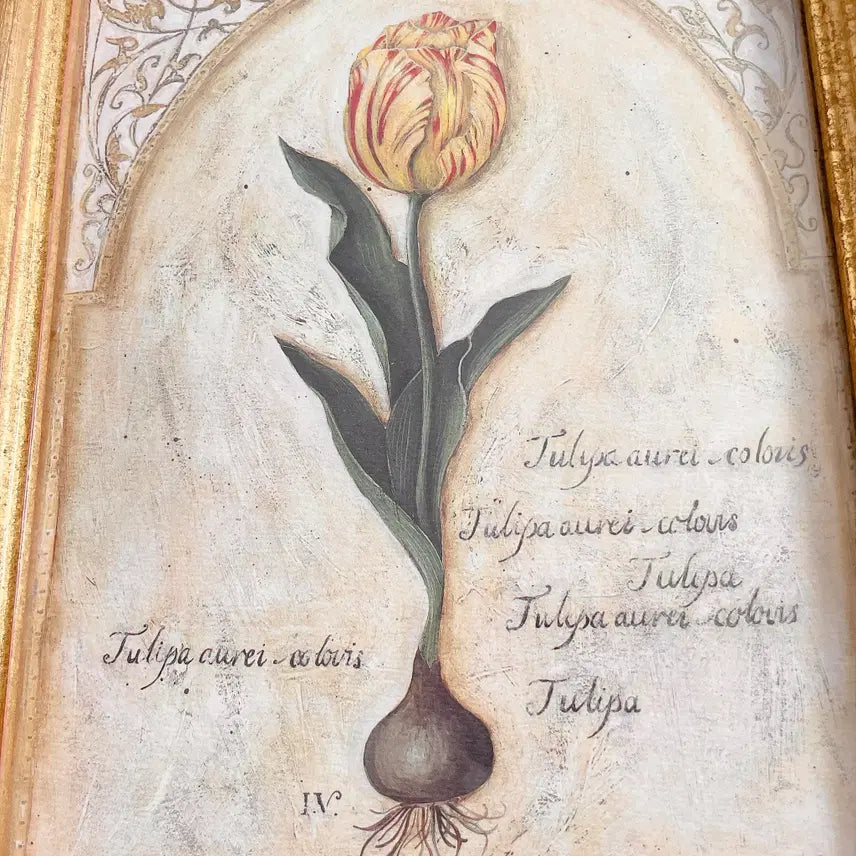 Tulipa aurei-coloris
Tulipa aurei-coloris
Tulipa
Tulipa aurei-coloris
Tulipa aurei-coloris
Tulipa
I.V.